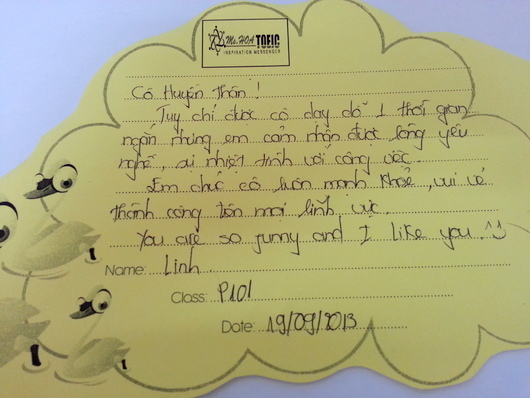 Ms. HOA TOEIC
INSPIRATION MESSENGER
Cô Huyền thân !
Tuy chỉ được cô dạy dỗ 1 thời gian
ngắn nhưng em cảm nhận được lòng yêu
nghề, sự nhiệt tình với công việc.
Em chúc cô luôn mạnh khỏe, vui vẻ
thành công trên mọi lĩnh vực.
You are so funny and I like you.
Name: Linh
Class: P101
Date: 19/09/2013